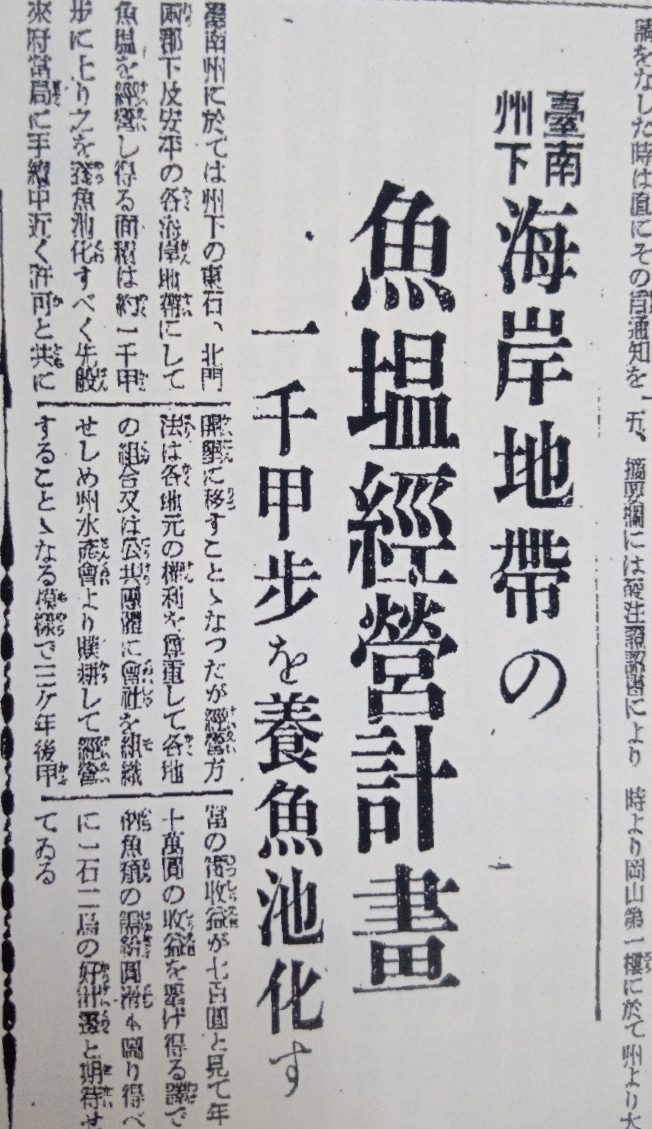 講をなした時は直にその旨通知を
五、摘要欄には
により
時より岡山第一樓に於て州より大
臺南
州下
海岸地帶の
魚塭經營計畫
一千甲步を養魚池化す
臺南州に於ては州下の東石、北門
兩郡下及安平の各海岸地帶にして
魚塭を經營し得る面積は約一千甲
步に上り之を養魚池化すべく先般
來府當局に手續中近く許可と共に
開墾に移すことゝなつたが經營方
法は各地元の權利を尊重して各地
の組合又は公共團體に會社を組織
せしめ州水產會より贌耕して經營
することゝなる模樣で三ケ年後甲
當の收益が七百圓と見て年
十萬圓の收益を擧げ得る譯で
魚類の需給圓滑も圖り得べ
に一石二鳥の好計畫と期待せ
てゐる